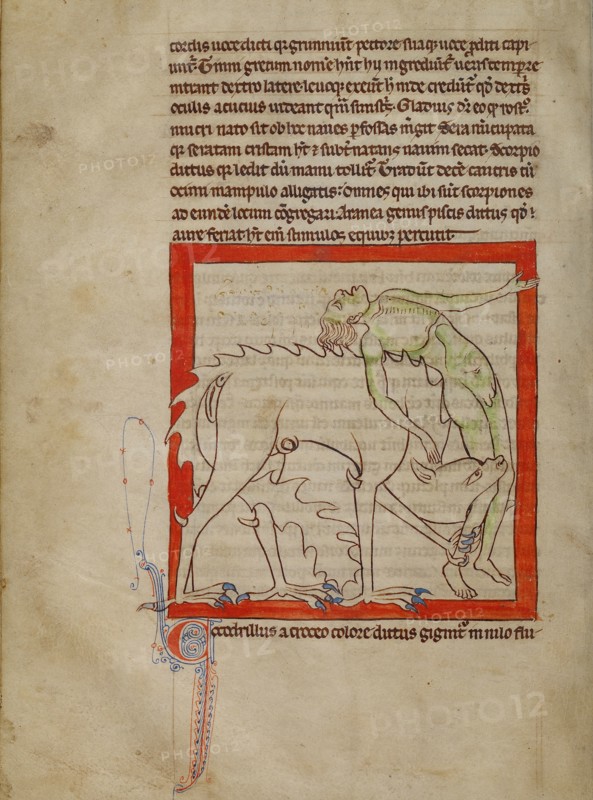 cordis uoce dicti qr grunniunt pectore sua qꝫ uoce ꝑditi capi-
unt̛. Tinni grecum nom̅e hn̅t hii ingrediunt̛ ueris tempore
intrant dextro latere leuoqꝫ exeu̅t h̅ inde credit̛ qd̛ dext̛s
oculis acucius uideant qm̅ sinist̛s. Gladius dr̅ eo q rost̛
mucronato sit ob hoc naues ꝑfossas m̛git. Serra nu̅cupata
qr serratam cristam ht̅ ⁊ subt̛ natans nauim secat. Scorpio
dictus qr ledit du̅ manu tollit̛. Tradu̅t dece̅ cancris cu̅
ocimi manipulo alligatis: omnes qui ibi su̅t scorpiones
ad eunde̅ locum co̅gregari. Aranea genus piscis dictus qd̛
aure feriat ht̅ eni̅ stimulos e quibꝫ percutit.
Cocodrillus a croceo colore dictus gignit̛ in nilo flu-
PHOTO12